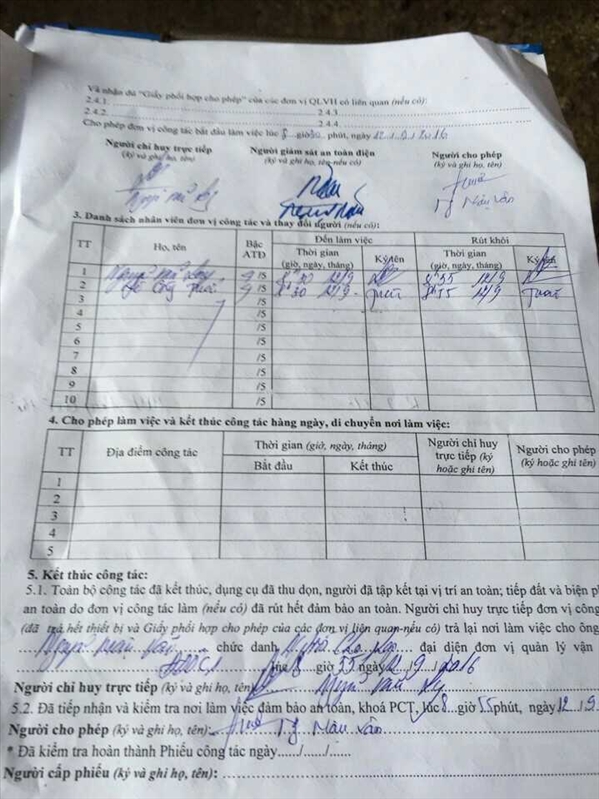 Và nhận đủ "Giấy phối hợp cho phép" của các đơn vị QLVH có liên quan (nếu có):
2.4.1. 2.4.3.
2.4.2. 2.4.4.
Cho phép đơn vị công tác bắt đầu làm việc lúc 8 giờ 30 phút, ngày 12/9/2016
Người chỉ huy trực tiếp Người giám sát an toàn điện Người cho phép
(ký và ghi họ, tên) (ký và ghi họ, tên-nếu có) (ký và ghi họ, tên)
3. Danh sách nhân viên đơn vị công tác và thay đổi người (nếu có):
TT Họ, tên Bậc ATĐ Đến làm việc Rút khỏi
Thời gian (giờ, ngày, tháng) Ký tên Thời gian (giờ, ngày, tháng) Ký tên
1 /5 8h30 12/9 8h55 12/9
2 /5 8h30 12/9 8h55 12/9
3 /5
4 /5
5 /5
6 /5
7 /5
8 /5
9 /5
10 /5
4. Cho phép làm việc và kết thúc công tác hàng ngày, di chuyển nơi làm việc:
TT Địa điểm công tác Thời gian (giờ, ngày, tháng) Người chỉ huy trực tiếp (ký hoặc ghi tên) Người cho phép (ký hoặc ghi tên)
Bắt đầu Kết thúc
1
2
3
4
5
5. Kết thúc công tác:
5.1. Toàn bộ công tác đã kết thúc, dụng cụ đã thu dọn, người đã tập kết tại vị trí an toàn; tiếp đất và biện p
an toàn do đơn vị công tác làm (nếu có) đã rút hết đảm bảo an toàn. Người chỉ huy trực tiếp đơn vị công
(đã trả hết thiết bị và Giấy phối hợp cho phép của các đơn vị liên quan-nếu có) trả lại nơi làm việc cho ông
chức danh đại diện đơn vị quản lý vận
lúc 8 giờ 55 ngày 12/9/2016
Người chỉ huy trực tiếp (ký và ghi họ, tên)
5.2. Đã tiếp nhận và kiểm tra nơi làm việc đảm bảo an toàn, khoá PCT, lúc 8 giờ 55 phút, ngày 12.9.
Người cho phép (ký và ghi họ, tên):
* Đã kiểm tra hoàn thành Phiếu công tác ngày...../...../.....
Người cấp phiếu (ký và ghi họ, tên):